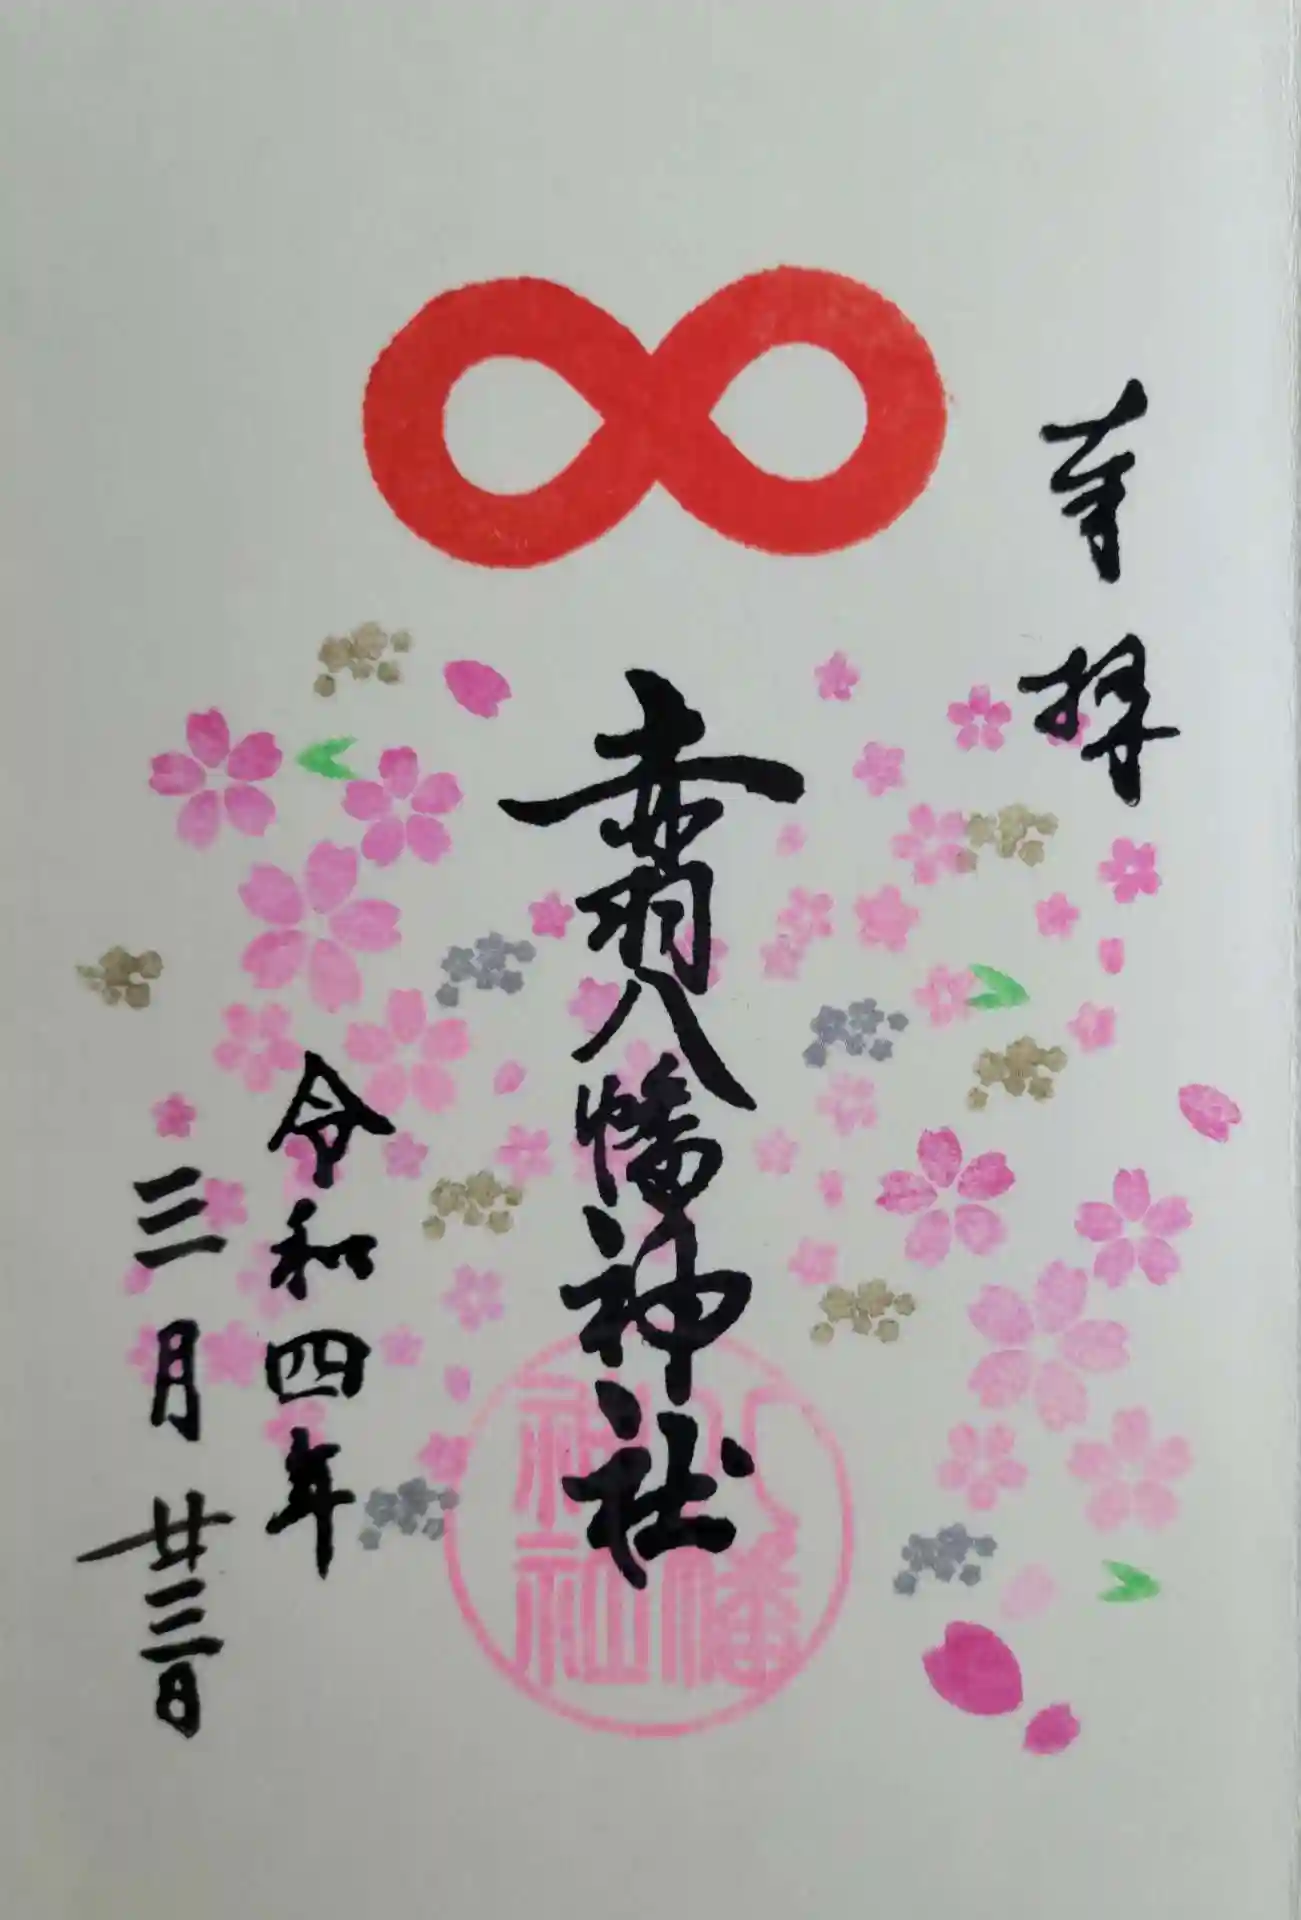 奉拝
赤羽八幡神社
八幡
神社
令和四年
三月廿三日